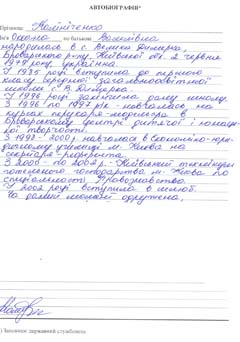 АВТОБІОГРАФІЯ*
Прізвище
Ім'я Оксана по батькові Василівна
народилась в с. Велика Димерка,
Броварського р-ну Київської обл. 2 червня
українка.
В 1985 році вступила до першого
класу середньої загальноосвітньої
школи с. В. Димерка.
У 1996 році закінчила дану школу.
З 1996 по 1997 рік - навчалася на
курсах перукаря-модельєра в
Броварському центрі дитячої і юнаць-
кої творчості.
З 1997 - 2000 р. навчалася в Економіко-юри-
дичному училищі м. Києва на
секретаря-референта.
З 2000 - до 2002 р. - Київський технікум
готельного господарства м. Києва по
спеціальності Правознавство.
У 2002 році вступила в шлюб.
На даний момент одружена.
) Заповнює державний службовець